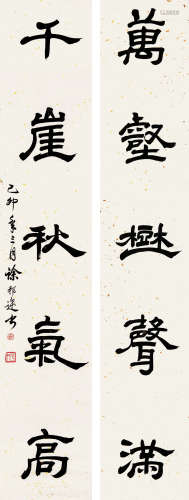 萬壑樹聲滿
千崖秋氣高
己卯年三月徐邦達书